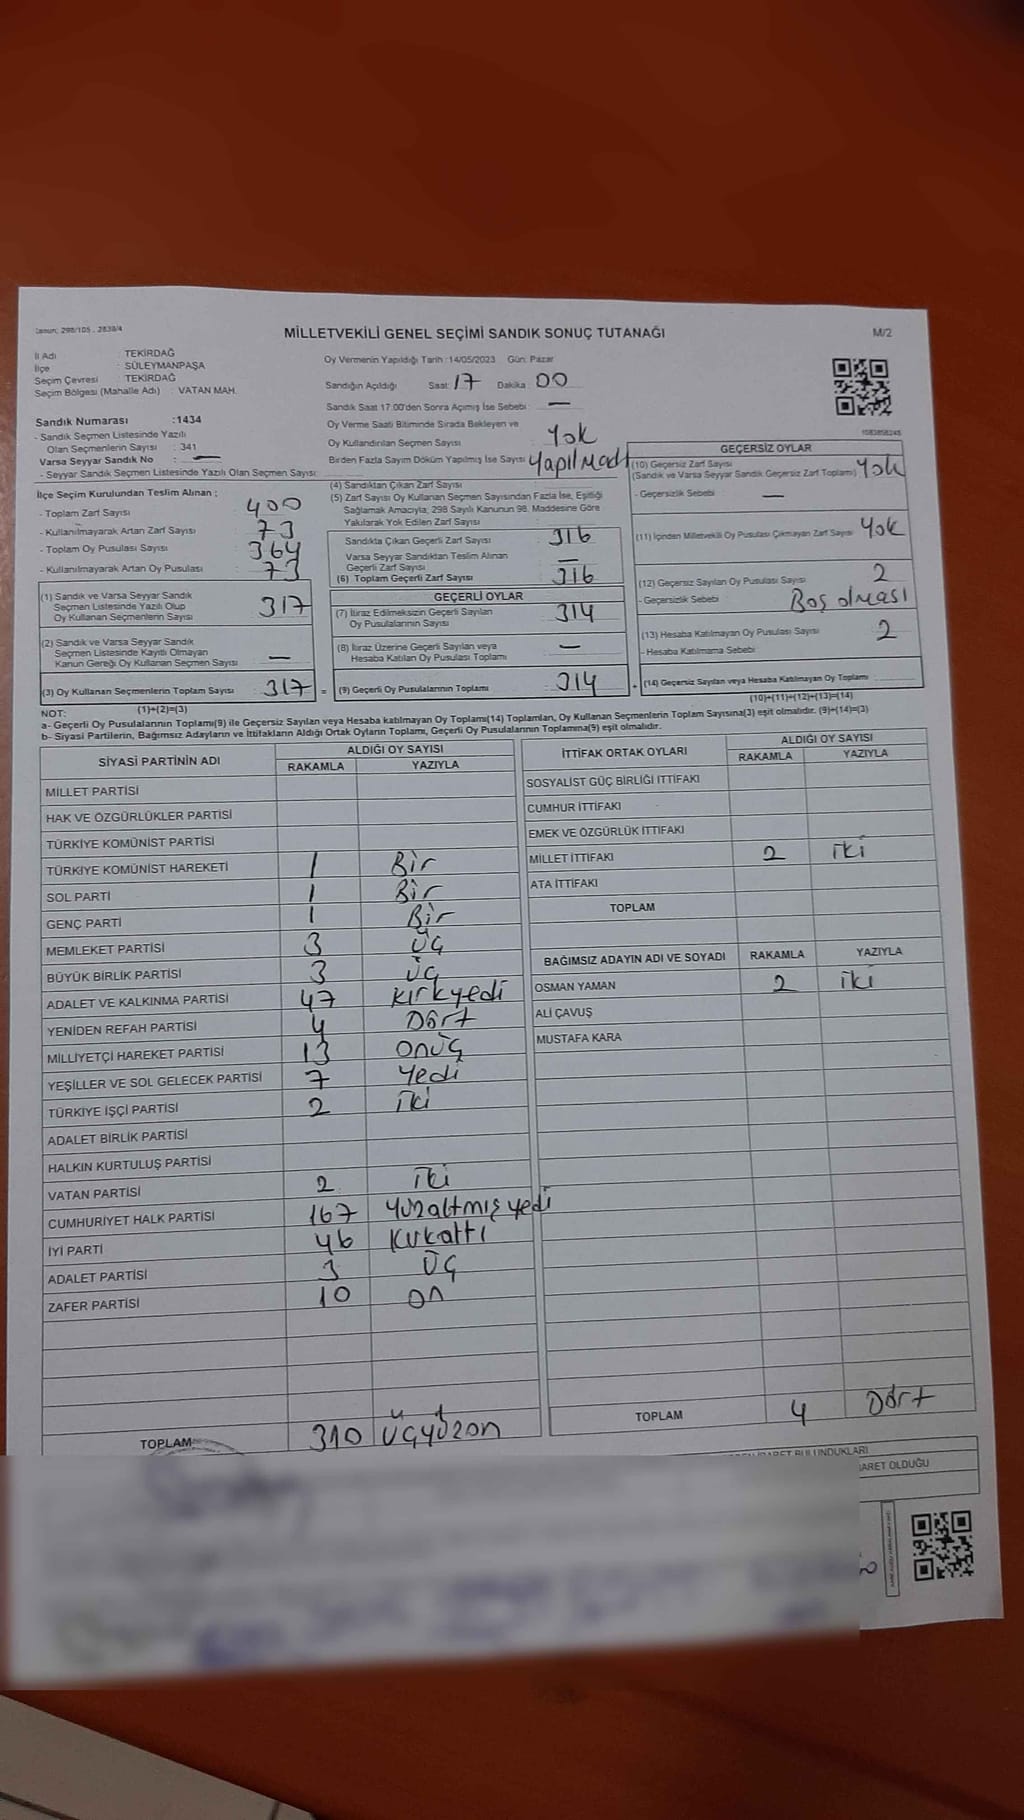 Kanun: 298/105 , 2839/4
MİLLETVEKİLİ GENEL SEÇİMİ SANDIK SONUÇ TUTANAĞI
M/2
İl Adı : TEKİRDAĞ
İlçe : SÜLEYMANPAŞA
Seçim Çevresi : TEKİRDAĞ
Seçim Bölgesi (Mahalle Adı) : VATAN MAH.
Sandık Numarası :1434
- Sandık Seçmen Listesinde Yazılı
Olan Seçmenlerin Sayısı : 341
Varsa Seyyar Sandık No : —
- Seyyar Sandık Seçmen Listesinde Yazılı Olan Seçmen Sayısı:
Oy Vermenin Yapıldığı Tarih :14/05/2023 Gün: Pazar
Sandığın Açıldığı Saat: 17 Dakika: 00
Sandık Saat 17.00'den Sonra Açılmış İse Sebebi: —
Oy Verme Saati Bitiminde Sırada Bekleyen ve
Oy Kullandırılan Seçmen Sayısı : Yok
Birden Fazla Sayım Döküm Yapılmış İse Sayısı: Yapılmadı
İlçe Seçim Kurulundan Teslim Alınan ;
- Toplam Zarf Sayısı : 400
- Kullanılmayarak Artan Zarf Sayısı : 73
- Toplam Oy Pusulası Sayısı : 364
- Kullanılmayarak Artan Oy Pusulası : 73
(1) Sandık ve Varsa Seyyar Sandık
Seçmen Listesinde Yazılı Olup
Oy Kullanan Seçmenlerin Sayısı : 317
(2) Sandık ve Varsa Seyyar Sandık
Seçmen Listesinde Kayıtlı Olmayan
Kanun Gereği Oy Kullanan Seçmen Sayısı : —
(3) Oy Kullanan Seçmenlerin Toplam Sayısı : 317 =
(1)+(2)=(3)
(4) Sandıktan Çıkan Zarf Sayısı :
(5) Zarf Sayısı Oy Kullanan Seçmen Sayısından Fazla İse, Eşitliği
Sağlamak Amacıyla, 298 Sayılı Kanunun 98. Maddesine Göre
Yakılarak Yok Edilen Zarf Sayısı :
Sandıkta Çıkan Geçerli Zarf Sayısı : 316
Varsa Seyyar Sandıktan Teslim Alınan
Geçerli Zarf Sayısı : —
(6) Toplam Geçerli Zarf Sayısı : 316
GEÇERLİ OYLAR
(7) İtiraz Edilmeksizin Geçerli Sayılan
Oy Pusulalarının Sayısı : 314
(8) İtiraz Üzerine Geçerli Sayılan veya
Hesaba Katılan Oy Pusulası Toplamı : —
(9) Geçerli Oy Pusulalarının Toplamı : 314 +
1083858245
GEÇERSİZ OYLAR
(10) Geçersiz Zarf Sayısı
(Sandık ve Varsa Seyyar Sandık Geçersiz Zarf Toplamı) : Yok
- Geçersizlik Sebebi : —
(11) İçinden Milletvekili Oy Pusulası Çıkmayan Zarf Sayısı : Yok
(12) Geçersiz Sayılan Oy Pusulası Sayısı : 2
- Geçersizlik Sebebi : Boş olması
(13) Hesaba Katılmayan Oy Pusulası Sayısı : 2
- Hesaba Katılmama Sebebi :
(14) Geçersiz Sayılan veya Hesaba Katılmayan Oy Toplamı :
(10)+(11)+(12)+(13)=(14)
NOT:
a- Geçerli Oy Pusulalarının Toplamı(9) ile Geçersiz Sayılan veya Hesaba katılmayan Oy Toplamı(14) Toplamları, Oy Kullanan Seçmenlerin Toplam Sayısına(3) eşit olmalıdır. (9)+(14)=(3)
b- Siyasi Partilerin, Bağımsız Adayların ve İttifakların Aldığı Ortak Oyların Toplamı, Geçerli Oy Pusulalarının Toplamına(9) eşit olmalıdır.
SİYASİ PARTİNİN ADI ALDIĞI OY SAYISI
RAKAMLA YAZIYLA
MİLLET PARTİSİ
HAK VE ÖZGÜRLÜKLER PARTİSİ
TÜRKİYE KOMÜNİST PARTİSİ
TÜRKİYE KOMÜNİST HAREKETİ 1 Bir
SOL PARTİ 1 Bir
GENÇ PARTİ 1 Bir
MEMLEKET PARTİSİ 3 Üç
BÜYÜK BİRLİK PARTİSİ 3 Üç
ADALET VE KALKINMA PARTİSİ 47 Kırkyedi
YENİDEN REFAH PARTİSİ 4 Dört
MİLLİYETÇİ HAREKET PARTİSİ 13 Onüç
YEŞİLLER VE SOL GELECEK PARTİSİ 7 Yedi
TÜRKİYE İŞÇİ PARTİSİ 2 İki
ADALET BİRLİK PARTİSİ
HALKIN KURTULUŞ PARTİSİ
VATAN PARTİSİ 2 İki
CUMHURİYET HALK PARTİSİ 167 Yüzaltmışyedi
İYİ PARTİ 46 Kırkaltı
ADALET PARTİSİ 3 Üç
ZAFER PARTİSİ 10 On
TOPLAM 310 Üçyüzon
İTTİFAK ORTAK OYLARI ALDIĞI OY SAYISI
RAKAMLA YAZIYLA
SOSYALİST GÜÇ BİRLİĞİ İTTİFAKI
CUMHUR İTTİFAKI
EMEK VE ÖZGÜRLÜK İTTİFAKI
MİLLET İTTİFAKI 2 İki
ATA İTTİFAKI
TOPLAM
BAĞIMSIZ ADAYIN ADI VE SOYADI RAKAMLA YAZIYLA
OSMAN YAMAN 2 İki
ALİ ÇAVUŞ
MUSTAFA KARA
TOPLAM 4 Dört
BULUNDUKLARI
OLDUĞU